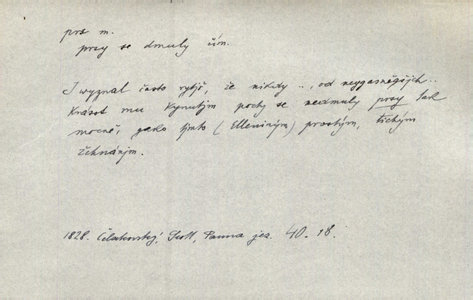 prs m.
prsy se dmuly čím.
I wyznal často rytjř, že nikdy .., od neygasněgšjch..
krásot mu kynutjm pocty se nedmuly prsy tak
mocně, gako tjmto (Elleniným) prostým, tichým
žehnánjm.
1828. Čelakovský, Scott, Panna jez. 40. 18.